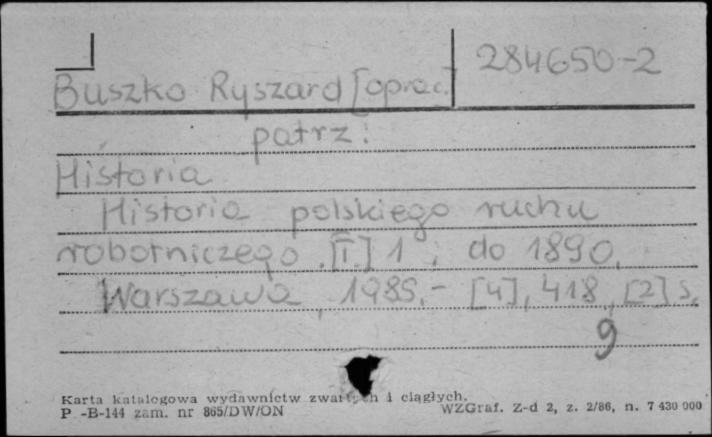 284650-2
Buszko Ryszard [oprac.]
patrz:
Historia
Historia polskiego ruchu
robotniczego. [T.] 1 : do 1890.
Warszawa, 1985.- [4], 418, [2] s.
9
Karta katalogowa wydawnictw zwartych i ciągłych.
P -B-144 zam. nr 865/DW/ON WZGraf. Z-d 2, z. 2/86, n. 7 430 000